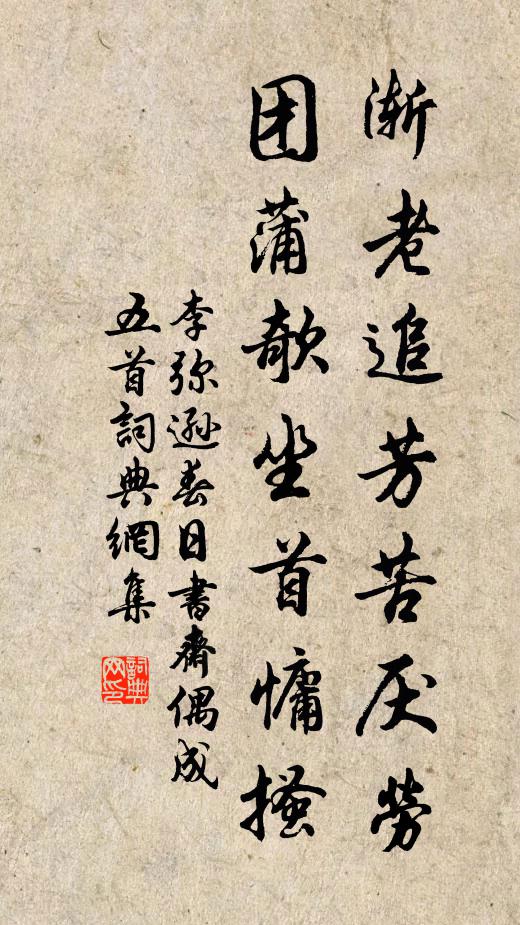 渐老追芳苦厌劳
团蒲欹坐首慵搔
李弥逊春日书斋偶成
五首詞典網集
詞典网印